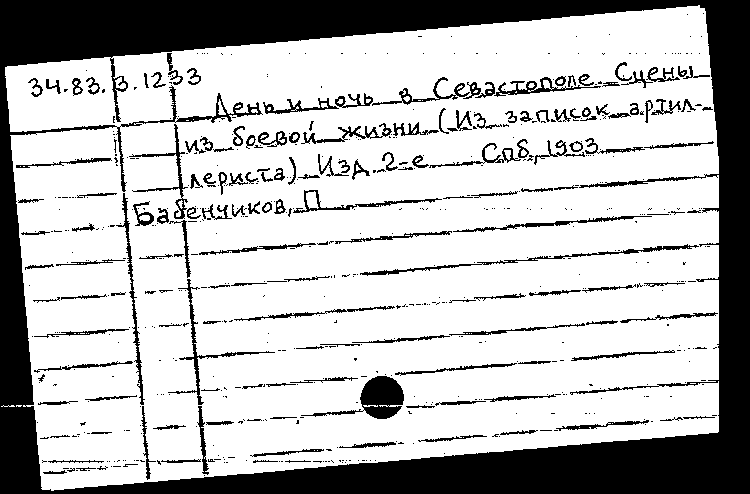 34.83.3.1233
День и ночь в Севастополе. Сцены
из боевой жизни (Из записок артил-
лериста). Изд. 2-е Спб., 1903
Бабенчиков, П